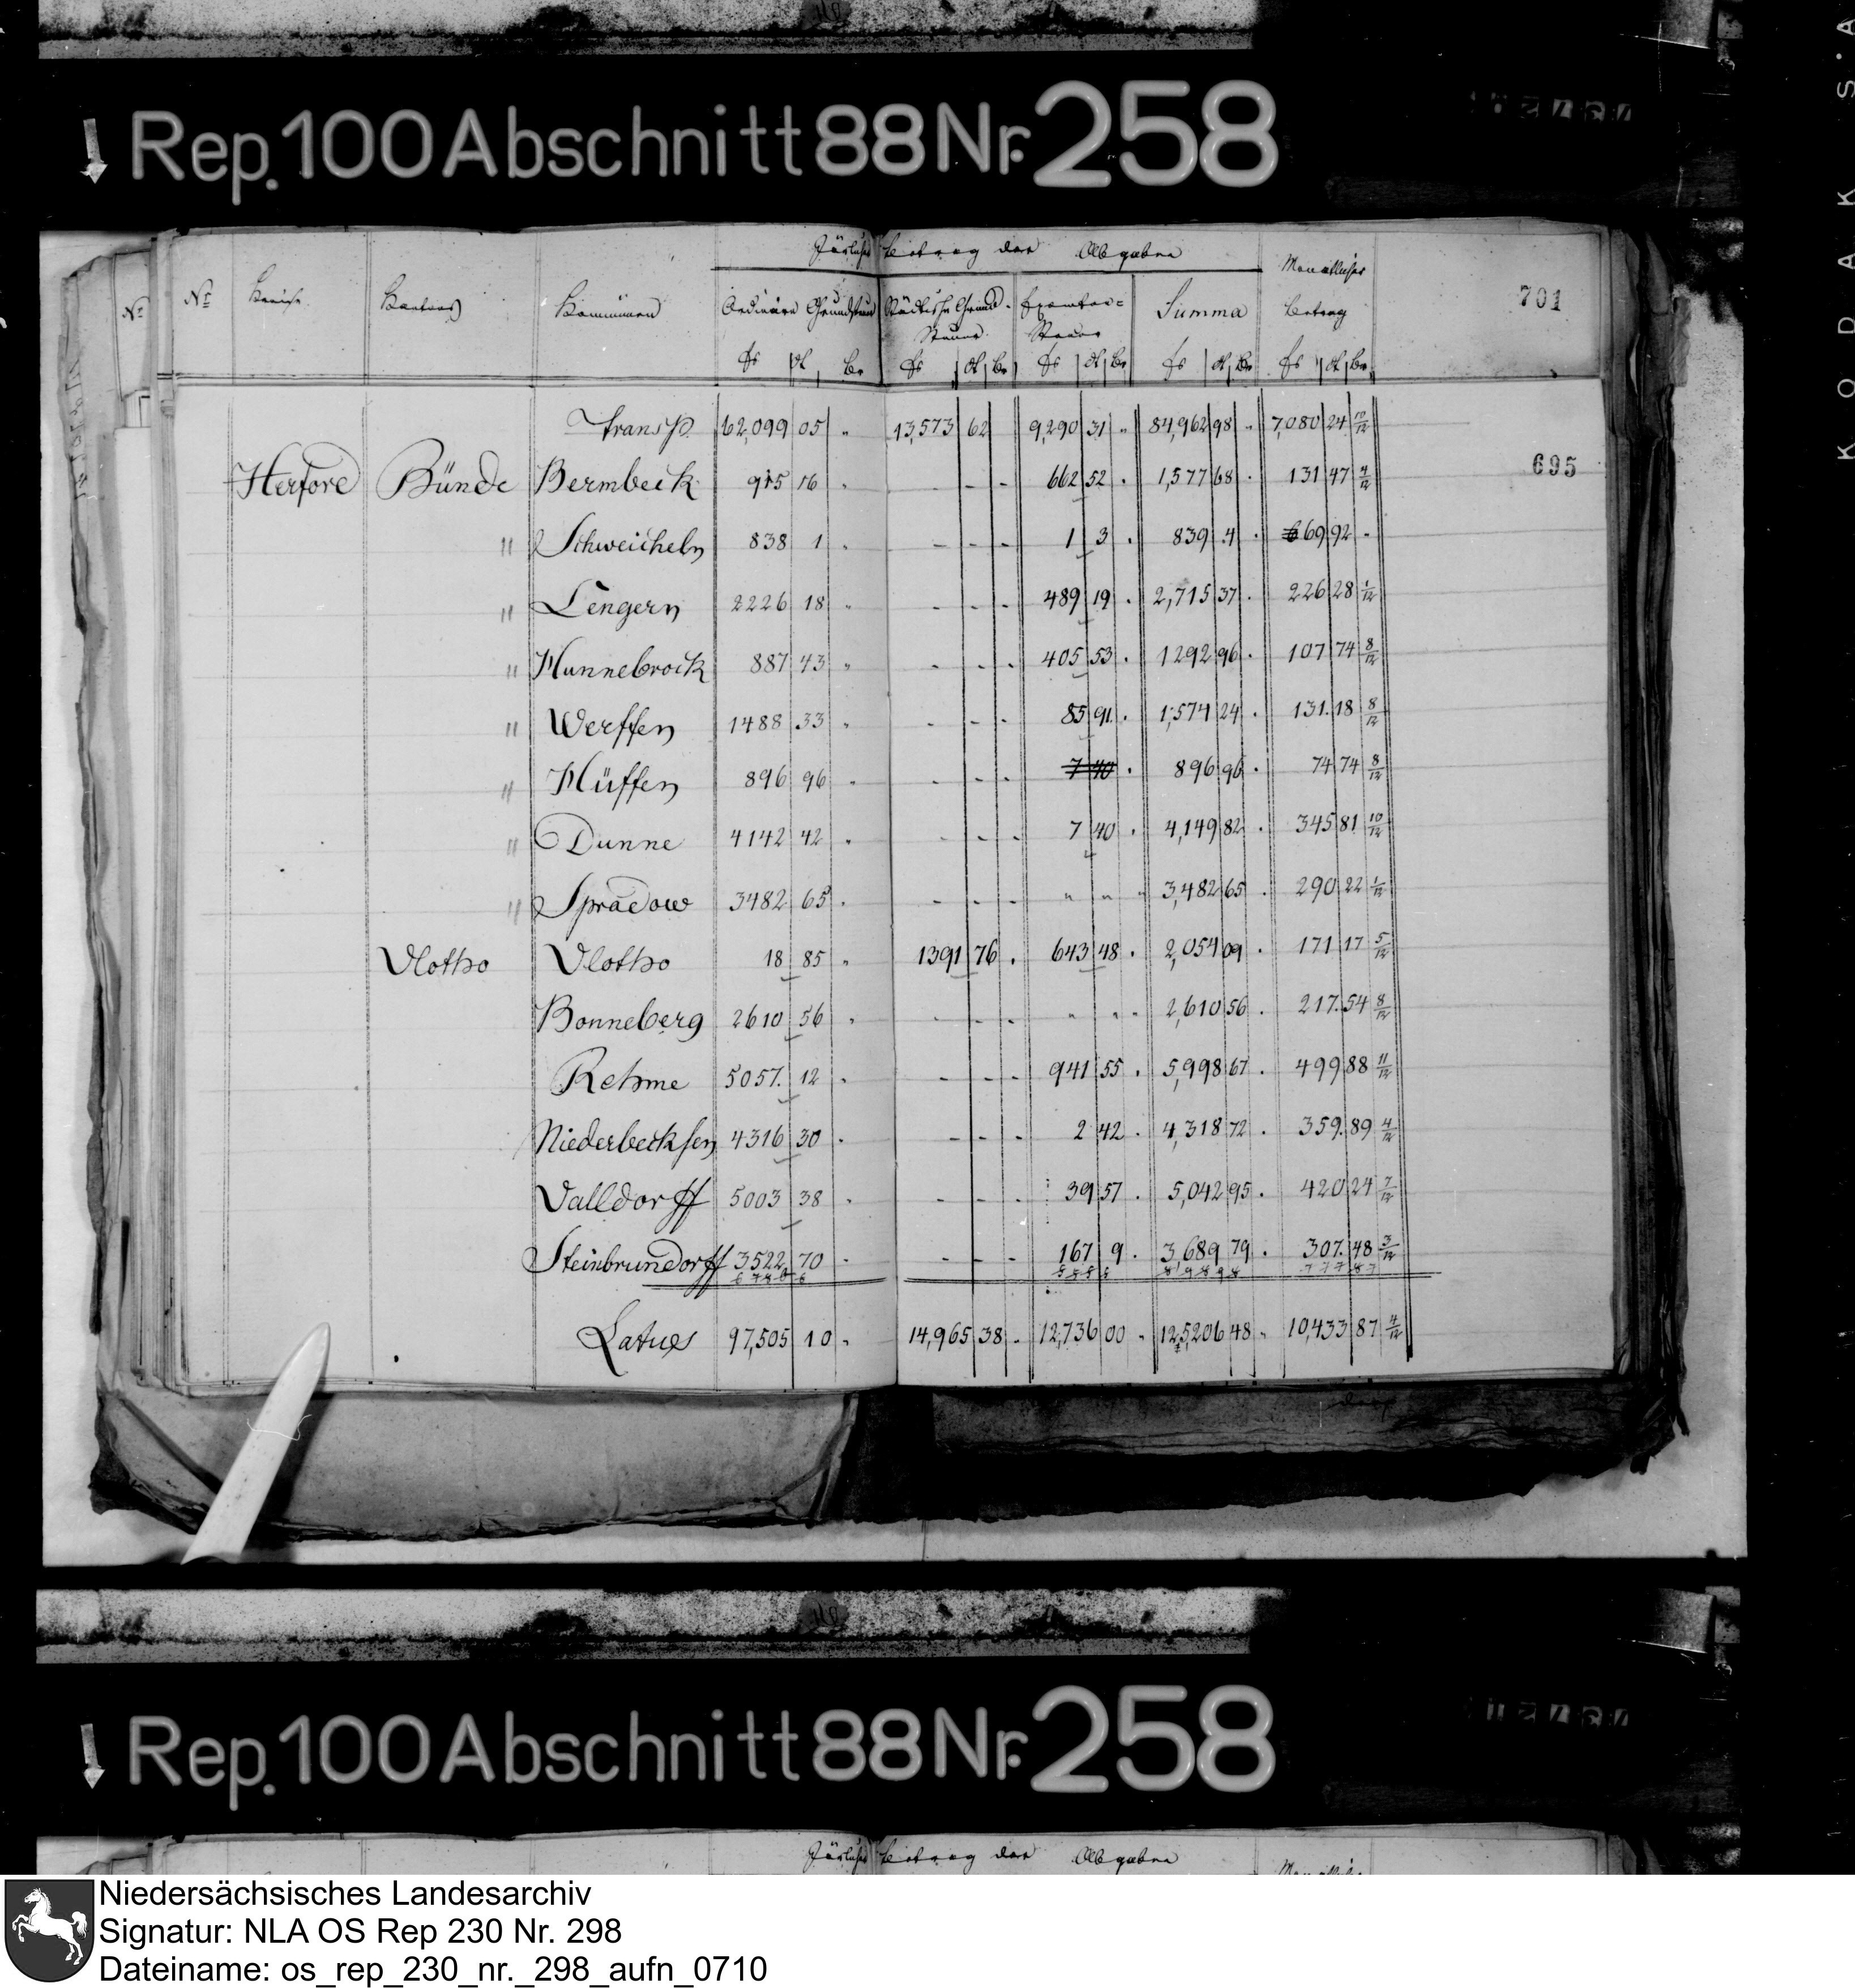 Rep. 100 Abschnitt 88 Nr. 258
Jährlicher Betrag der Abgaben
701
No No Kreise Kantons Kommunen Ordinäre Grundsteuer Städtische Grund- Steuer Exemten= Steuer Summa Monatlicher Betrag
fs ct Ce fs ct Ce fs ct Ce fs ct Ce fs ct Ce
Transp. 62,099 05 " 13,573 62 9,290 31 " 84,962 98 " 7,080 24 10/12
695
Herford Bünde Bermbeck 915 16 . - - - 662 52 . 1,577 68 . 131 47 4/12
" Schweicheln 838 1 . - - - 1 3 . 839 4 . 69 92 -
" Lengern 2226 18 " - - - 489 19 . 2,715 37 . 226 28 1/12
" Hunnebrock 887 43 " - - - 405 53 . 1292 96 . 107 74 8/12
" Werffen 1488 33 " - - - 85 91 . 1,574 24 . 131. 18 8/12
" Hüffen 896 96 " - - - 7 40 . 896 96 . 74 74 8/12
" Dünne 4142 42 " - - - 7 40 . 4,149 82 . 345 81 10/12
" Spradow 3482 65 . - - - " " " 3,482 65 . 290 22 1/12
Vlotho Vlotho 18 85 " 1391 76 . 643 48 . 2,054 09 . 171 17 5/12
Bonneberg 2610 56 " - - - " " " 2,610 56 . 217. 54 8/12
Rehme 5057. 12 . - - - 941 55 . 5,998 67 . 499 88 11/12
Niederbecksen 4316 30 . - - - 2 42 . 4,318 72 . 359. 89 4/12
Valldorff 5003 38 . - - - 39 57 . 5,042 95 . 420 24 7/12
Steinbrundorff 3522 70 . - - - 167 9 . 3,689 79 . 307. 48 3/12
Latus 97,505 10 " 14,965 38 . 12,736 00 " 125206 48 " 10,433 87 4/12
Rep. 100 Abschnitt 88 Nr. 258
Jährlicher Betrag der Abgaben
KODAK S.A
Niedersächsisches Landesarchiv
Signatur: NLA OS Rep 230 Nr. 298
Dateiname: os_rep_230_nr._298_aufn_0710